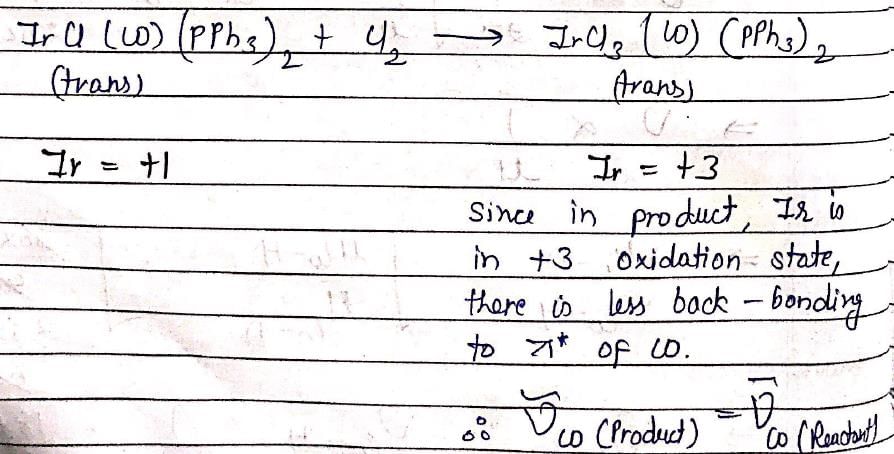 IrCl (CO) (PPh₃)₂ + Cl₂ ⟶ IrCl₃ (CO) (PPh₃)₂
(trans) (trans)
Ir = +1 Ir = +3
Since in product, Ir is
in +3 oxidation state,
there is less back - bonding
to π* of CO.
∴ ν̄ CO (Product) = ν̄ CO (Reactant)